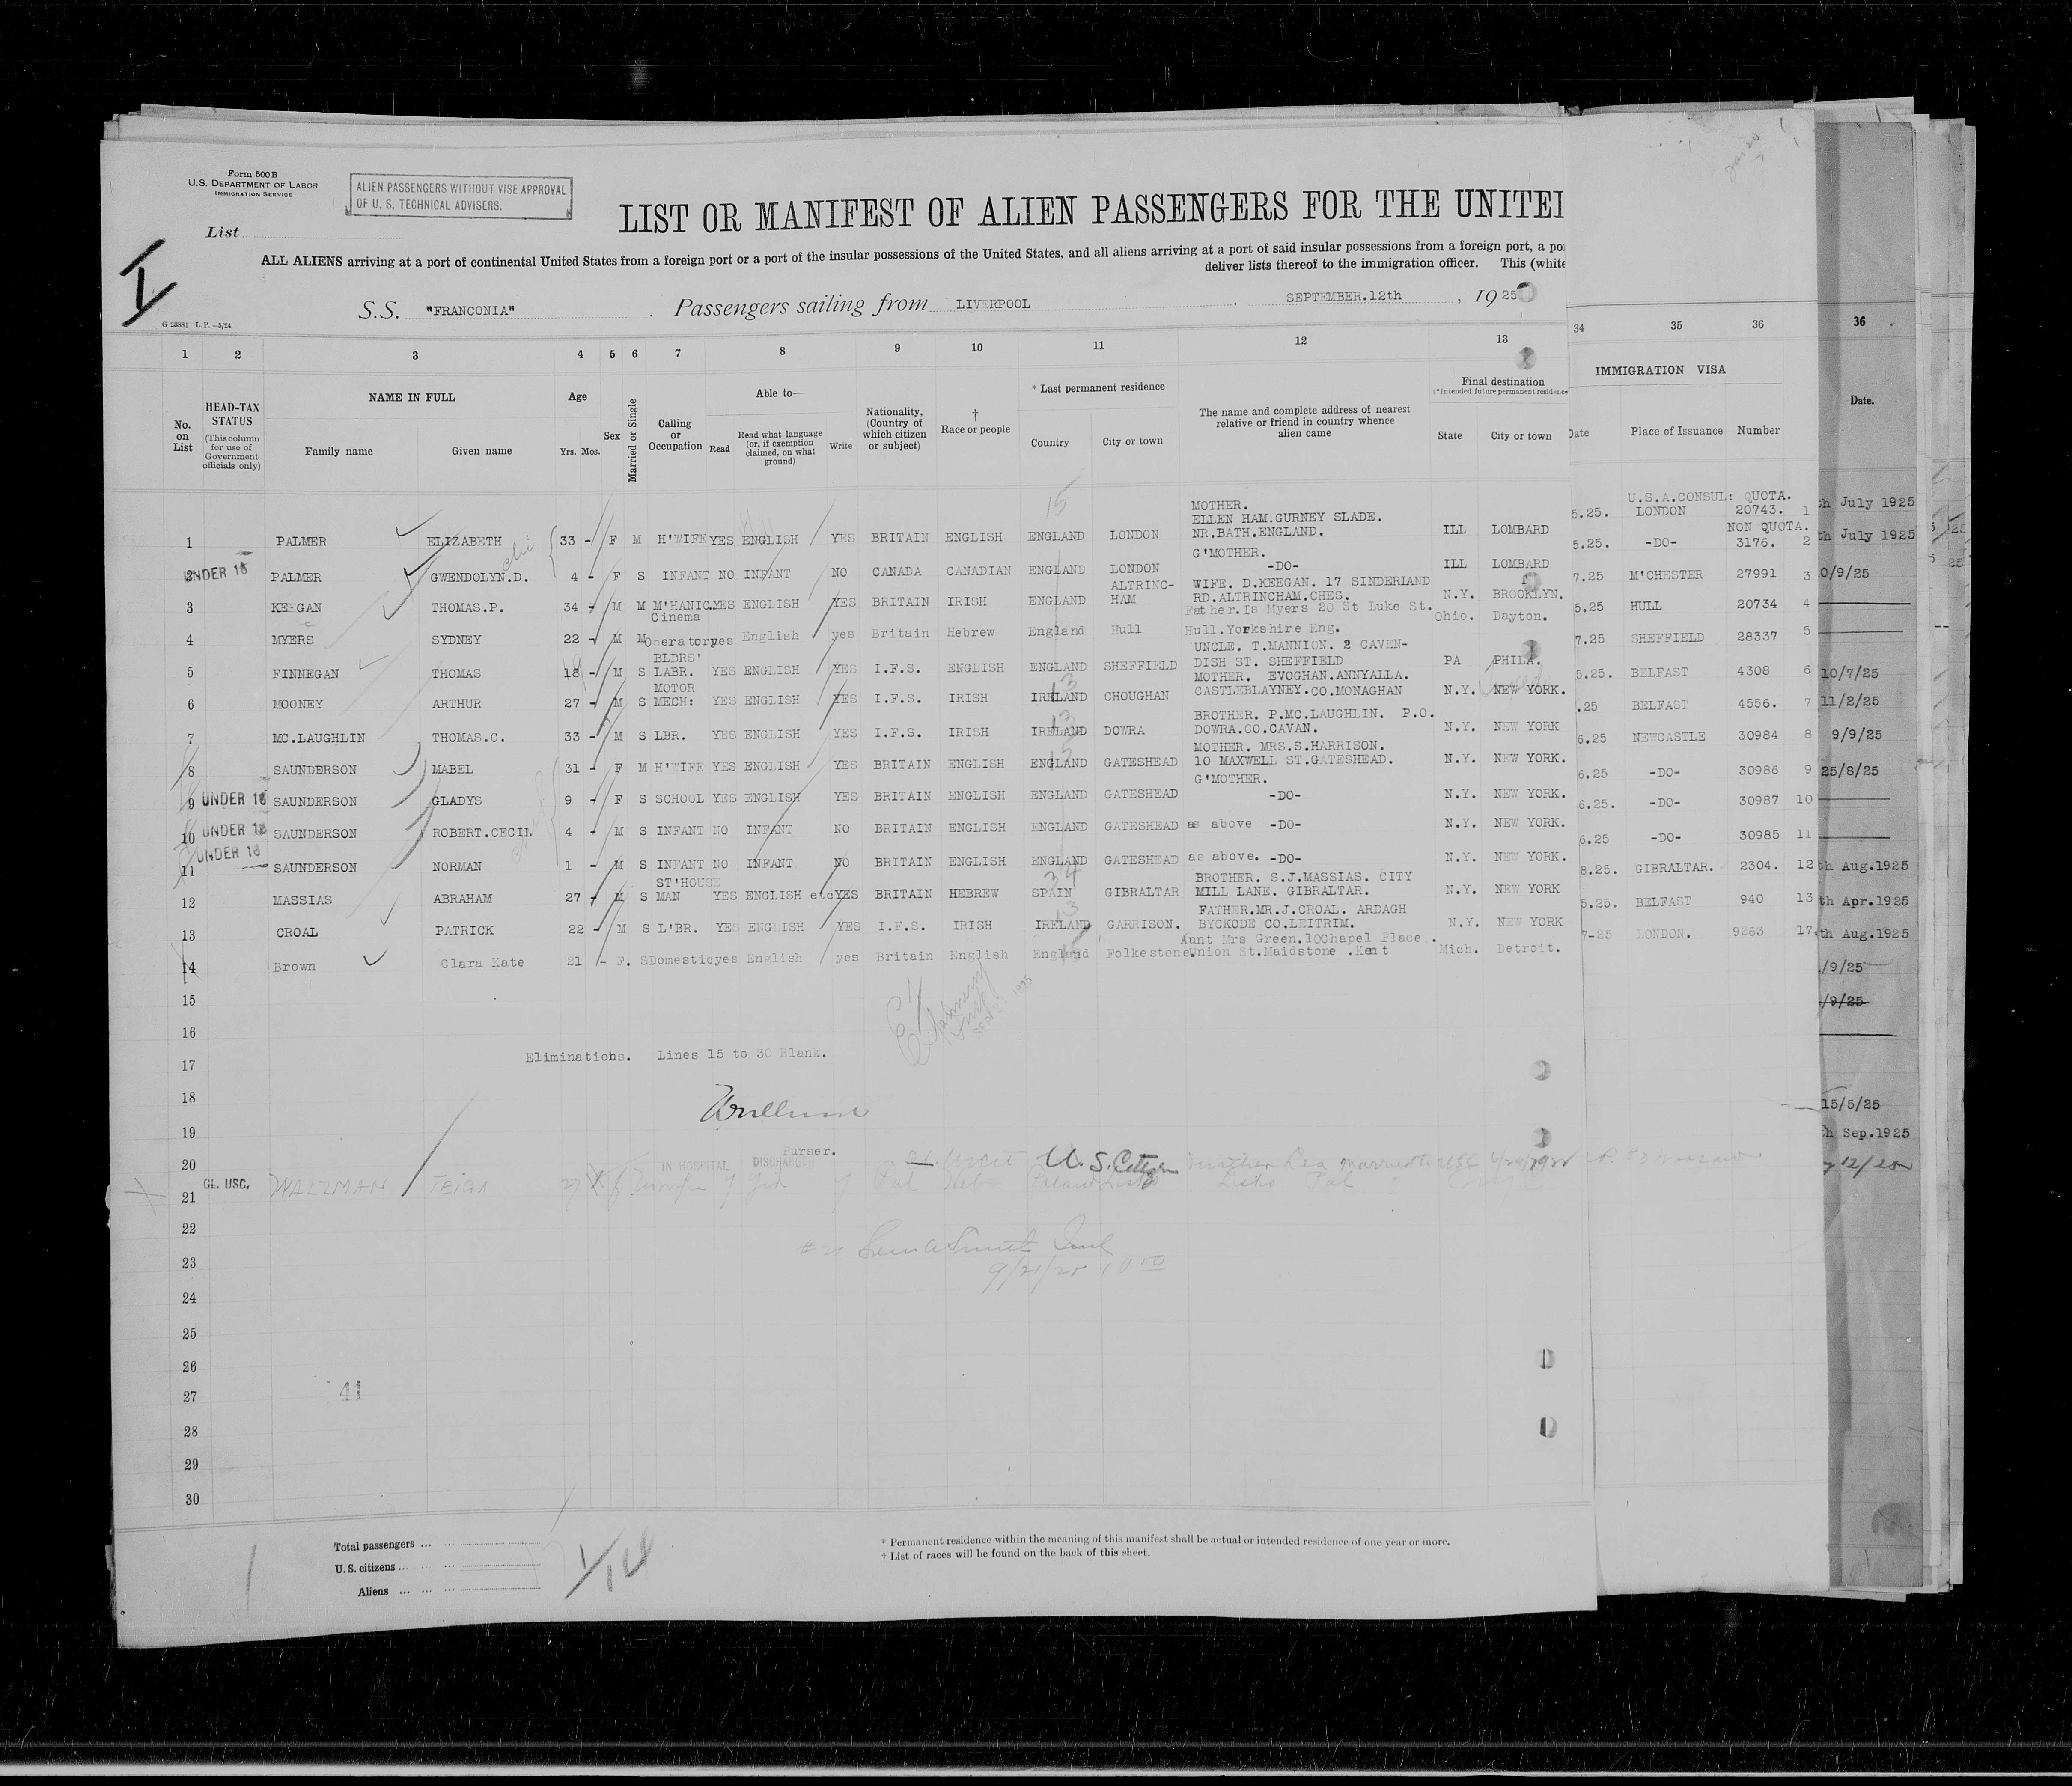 Form 500 B
U.S. DEPARTMENT OF LABOR
IMMIGRATION SERVICE
ALIEN PASSENGERS WITHOUT VISE APPROVAL
OF U. S. TECHNICAL ADVISERS.
List
I
LIST OR MANIFEST OF ALIEN PASSENGERS FOR THE UNITE
ALL ALIENS arriving at a port of continental United States from a foreign port or a port of the insular possessions of the United States, and all aliens arriving at a port of said insular possessions from a foreign port, a
deliver lists thereof to the immigration officer. This (white
S.S. "FRANCONIA" . Passengers sailing from LIVERPOOL , SEPTEMBER.12th , 1925
G 23881 L.P.—5/24
1 2 3 4 5 6 7 8 9 10 11 12 13 34 35 36 36
No. on List
HEAD-TAX STATUS (This column for use of Government officials only)
NAME IN FULL
Family name Given name
Age Yrs. Mos.
Sex
Married or Single
Calling or Occupation
Able to—
Read Read what language (or, if exemption claimed, on what ground) Write
Nationality, (Country of which citizen or subject)
† Race or people
* Last permanent residence
Country City or town
The name and complete address of nearest relative or friend in country whence alien came
Final destination
(*Intended future permanent residence
State City or town
IMMIGRATION VISA
Date Place of Issuance Number
Date.
15
1 PALMER ELIZABETH 33 - F M H'WIFE YES ENGLISH YES BRITAIN ENGLISH ENGLAND LONDON MOTHER. ELLEN HAM.GURNEY SLADE. NR.BATH.ENGLAND. ILL LOMBARD 5.25. U.S.A.CONSUL: LONDON QUOTA. 20743. 1
UNDER 16 2 PALMER GWENDOLYN.D. 4 - F S INFANT NO INFANT NO CANADA CANADIAN ENGLAND LONDON G'MOTHER. -DO- ILL LOMBARD 5.25. -DO- NON QUOTA. 3176. 2
3 KEEGAN THOMAS.P. 34 - M M M'HANIC. YES ENGLISH YES BRITAIN IRISH ENGLAND ALTRINC-HAM WIFE. D.KEEGAN. 17 SINDERLAND RD.ALTRINCHAM.CHES. N.Y. BROOKLYN. 7.25 M'CHESTER 27991 3
4 MYERS SYDNEY 22 - M M Cinema Operator yes English yes Britain Hebrew England Hull Father.Is Myers 20 St Luke St. Hull.Yorkshire Eng. Ohio. Dayton. 5.25 HULL 20734 4
5 FINNEGAN THOMAS 18 - M S BLDRS' LABR. YES ENGLISH YES I.F.S. ENGLISH ENGLAND SHEFFIELD UNCLE. T.MANNION. 2 CAVEN-DISH ST. SHEFFIELD PA PHILA. 7.25 SHEFFIELD 28337 5
6 MOONEY ARTHUR 27 - M S MOTOR MECH: YES ENGLISH YES I.F.S. IRISH IRELAND CHOUGHAN MOTHER. EVOGHAN.ANNYALLA. CASTLEBLAYNEY.CO.MONAGHAN N.Y. NEW YORK. 5.25. BELFAST 4308 6
7 MC.LAUGHLIN THOMAS.C. 33 - M S LBR. YES ENGLISH YES I.F.S. IRISH IRELAND DOWRA BROTHER. P.MC.LAUGHLIN. P.O. DOWRA.CO.CAVAN. N.Y. NEW YORK .25 BELFAST 4556. 7
8 SAUNDERSON MABEL 31 - F M H'WIFE YES ENGLISH YES BRITAIN ENGLISH ENGLAND GATESHEAD MOTHER. MRS.S.HARRISON. 10 MAXWELL ST.GATESHEAD. N.Y. NEW YORK. 6.25 NEWCASTLE 30984 8
9 UNDER 16 SAUNDERSON GLADYS 9 - F S SCHOOL YES ENGLISH YES BRITAIN ENGLISH ENGLAND GATESHEAD G'MOTHER. -DO- N.Y. NEW YORK. 6.25 -DO- 30986 9
10 UNDER 16 SAUNDERSON ROBERT.CECIL 4 - M S INFANT NO INFANT NO BRITAIN ENGLISH ENGLAND GATESHEAD as above -DO- N.Y. NEW YORK. 6.25. -DO- 30987 10
11 UNDER 16 SAUNDERSON NORMAN 1 - M S INFANT NO INFANT NO BRITAIN ENGLISH ENGLAND GATESHEAD as above. -DO- N.Y. NEW YORK. 6.25 -DO- 30985 11
12 MASSIAS ABRAHAM 27 - M S ST'HOUSE MAN YES ENGLISH etc YES BRITAIN HEBREW SPAIN GIBRALTAR BROTHER. S.J.MASSIAS. CITY MILL LANE. GIBRALTAR. N.Y. NEW YORK 8.25. GIBRALTAR. 2304. 12
13 CROAL PATRICK 22 - M S L'BR. YES ENGLISH YES I.F.S. IRISH IRELAND GARRISON. FATHER.MR.J.CROAL. ARDAGH BYCKODE CO.LEITRIM. N.Y. NEW YORK 5.25. BELFAST 940 13
14 Brown Clara Kate 21 - F. S Domestic yes English yes Britain English England Folkestone Aunt Mrs Green.10Chapel Place. Union St.Maidstone .Kent Mich. Detroit. 7-25 LONDON. 9263 17
h July 1925
th July 1925
0/9/25
10/7/25
11/2/25
9/9/25
25/8/25
th Aug.1925
th Apr.1925
th Aug.1925
/9/25
/9/25
15/5/25
h Sep.1925
15
16
17 Eliminations. Lines 15 to 30 Blank.
18
19
Purser.
20 IN HOSPITAL DISCHARGED U.S. Citizen
21 GL. USC. WALZMAN
22
23
9/21/25
24
25
26
27 41
28
29
30
Total passengers ...
U.S. citizens ...
Aliens ...
1/14
* Permanent residence within the meaning of this manifest shall be actual or intended residence of one year or more.
† List of races will be found on the back of this sheet.